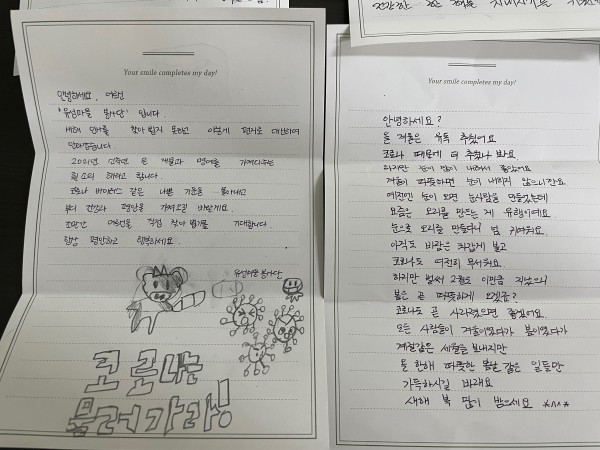 Your smile completes my day!
안녕하세요, 어르신
'유성마을 봉사단' 입니다.
새해 인사를 찾아 뵙지 못하고 이렇게 편지로 대신하여
2021년 신축년 은 재물과 명예를 가져다주는
흰 소의 해라고 합니다.
코로나 바이러스 같은 나쁜 기운을 몰아내고
부디 건강과 평안을 가져오길 바랄게요.
조만간 어르신을 직접 찾아 뵙기를 기대합니다.
항상 평안하고 행복하세요.
유성마을 봉사단
코로나는
물러가라!
Your smile completes my day!
안녕하세요?
올 겨울은 유독 추웠어요
코로나 때문에 더 추웠나 봐요
하지만 눈이 많이 내려서 좋았어요
겨울이 따뜻하면 눈이 내리지 않으니깐요
예전엔 눈이 오면 눈사람을 만들었는데
요즘은 오리를 만드는 게 유행이에요
눈으로 오리를 만들다니 넘 귀여워요.
아직도 바람은 차갑게 불고
코로나도 여전히 무서워요.
하지만 벌써 2월도 이만큼 지났으니
봄은 곧 따뜻하게 오겠죠?
코로나도 곧 사라졌으면 좋겠어요.
모든 사람들이 겨울이었다가 봄이었다가
계절같은 세월을 보내지만
올 한해 따뜻한 봄날 같은 일들만
가득하시길 바래요
새해 복 많이 받으세요 *^^*